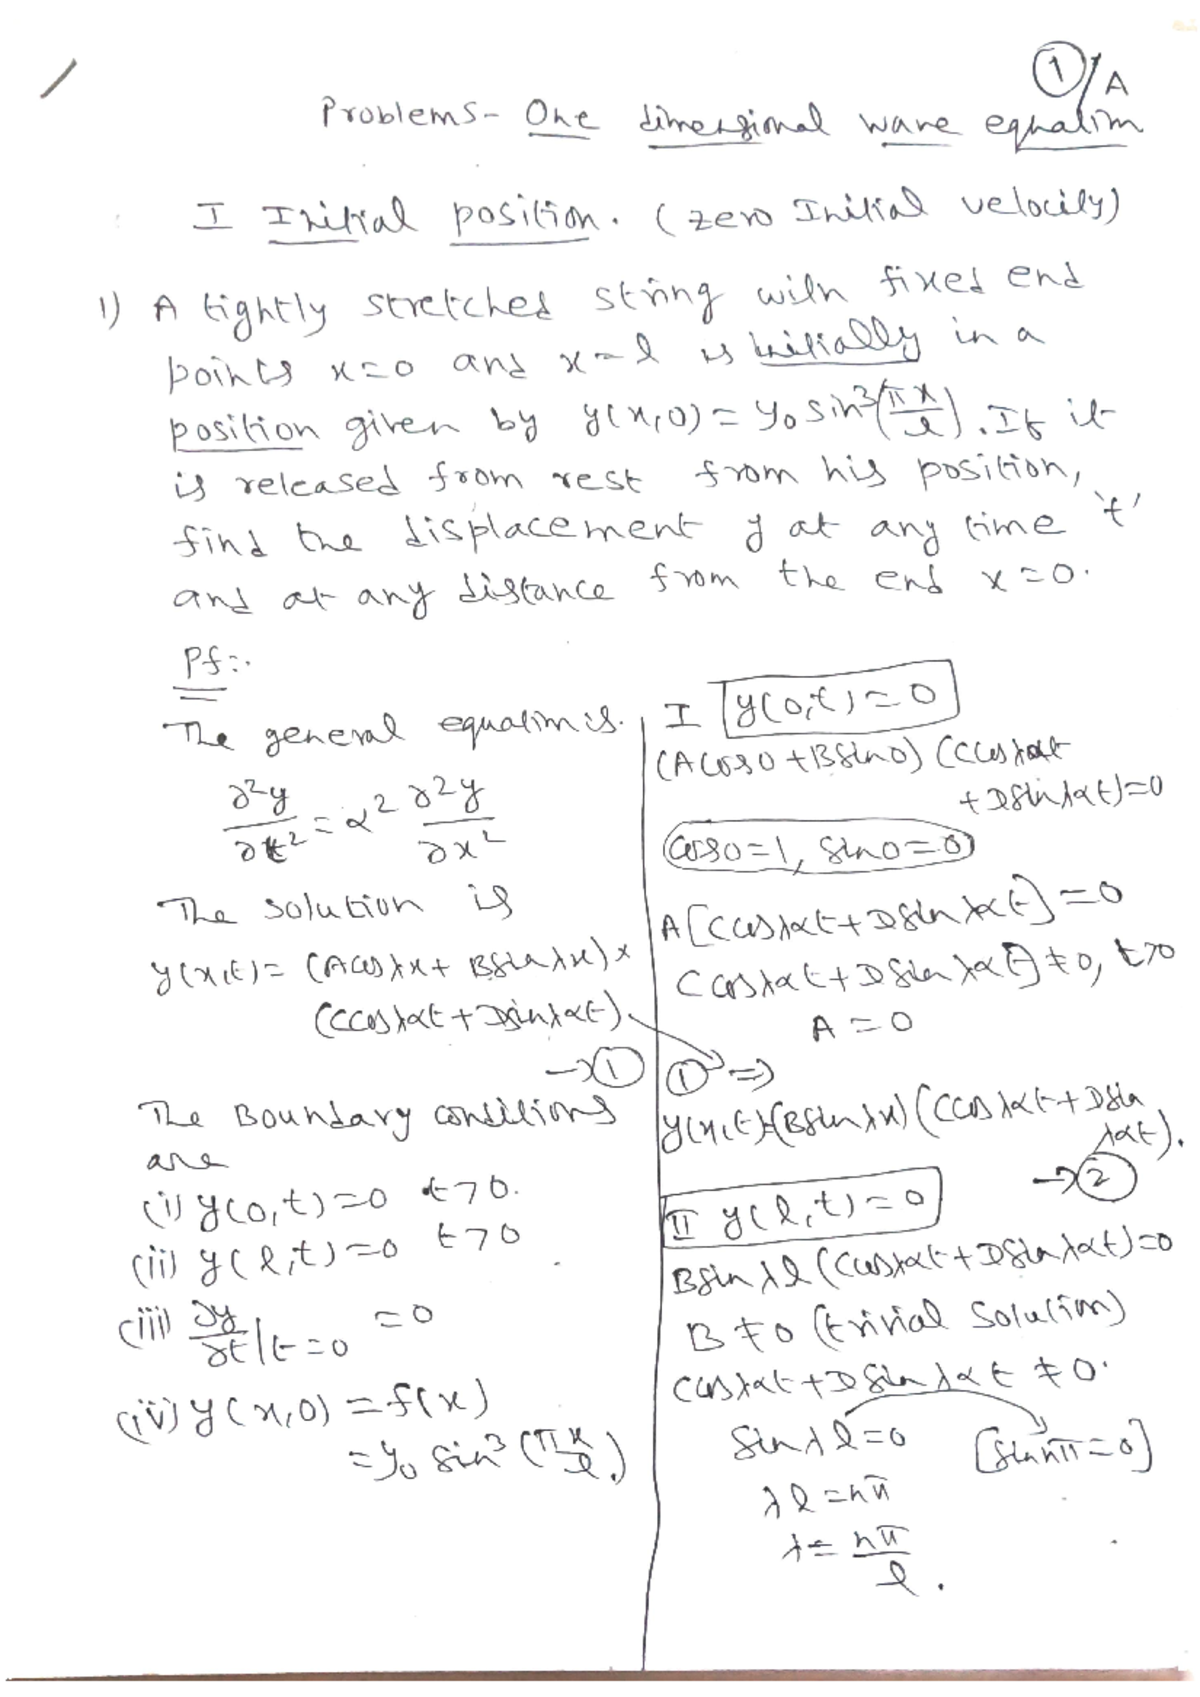 1/A
Problems- One dimensional wave equation
I Initial position. (zero Initial velocity)
1) A tightly stretched string with fixed end
points x=0 and x=l is initially in a
position given by y(x,0) = y₀ sin³(πx/l). If it
is released from rest from his position,
find the displacement y at any time 't'
and at any distance from the end x=0.
Pf:.
The general equation is.
∂²y/∂t² = α² ∂²y/∂x²
The solution is
y(x,t) = (A cos λx + B sin λx) ×
(C cos λαt + D sin λαt).
→ ①
The Boundary conditions
are
(i) y(0,t)=0 t>0.
(ii) y(l,t)=0 t>0
(iii) ∂y/∂t|t=0 = 0
(iv) y(x,0) = f(x)
= y₀ sin³(πx/l.)
I y(0,t)=0
(A cos 0 + B sin 0) (C cos λαt
+ D sin λαt)=0
cos 0=1, sin 0=0
A[C cos λαt + D sin λαt]=0
C cos λαt + D sin λαt] ≠ 0, t>0
A = 0
① ⇒
y(x,t)=(B sin λx) (C cos λαt + D sin
λαt).
→ ②
II y(l,t)=0
B sin λl (C cos λαt + D sin λαt)=0
B ≠ 0 (trivial solution)
C cos λαt + D sin λαt ≠ 0.
sin λl=0 [sin nπ=0]
λl = nπ
λ = nπ/l.